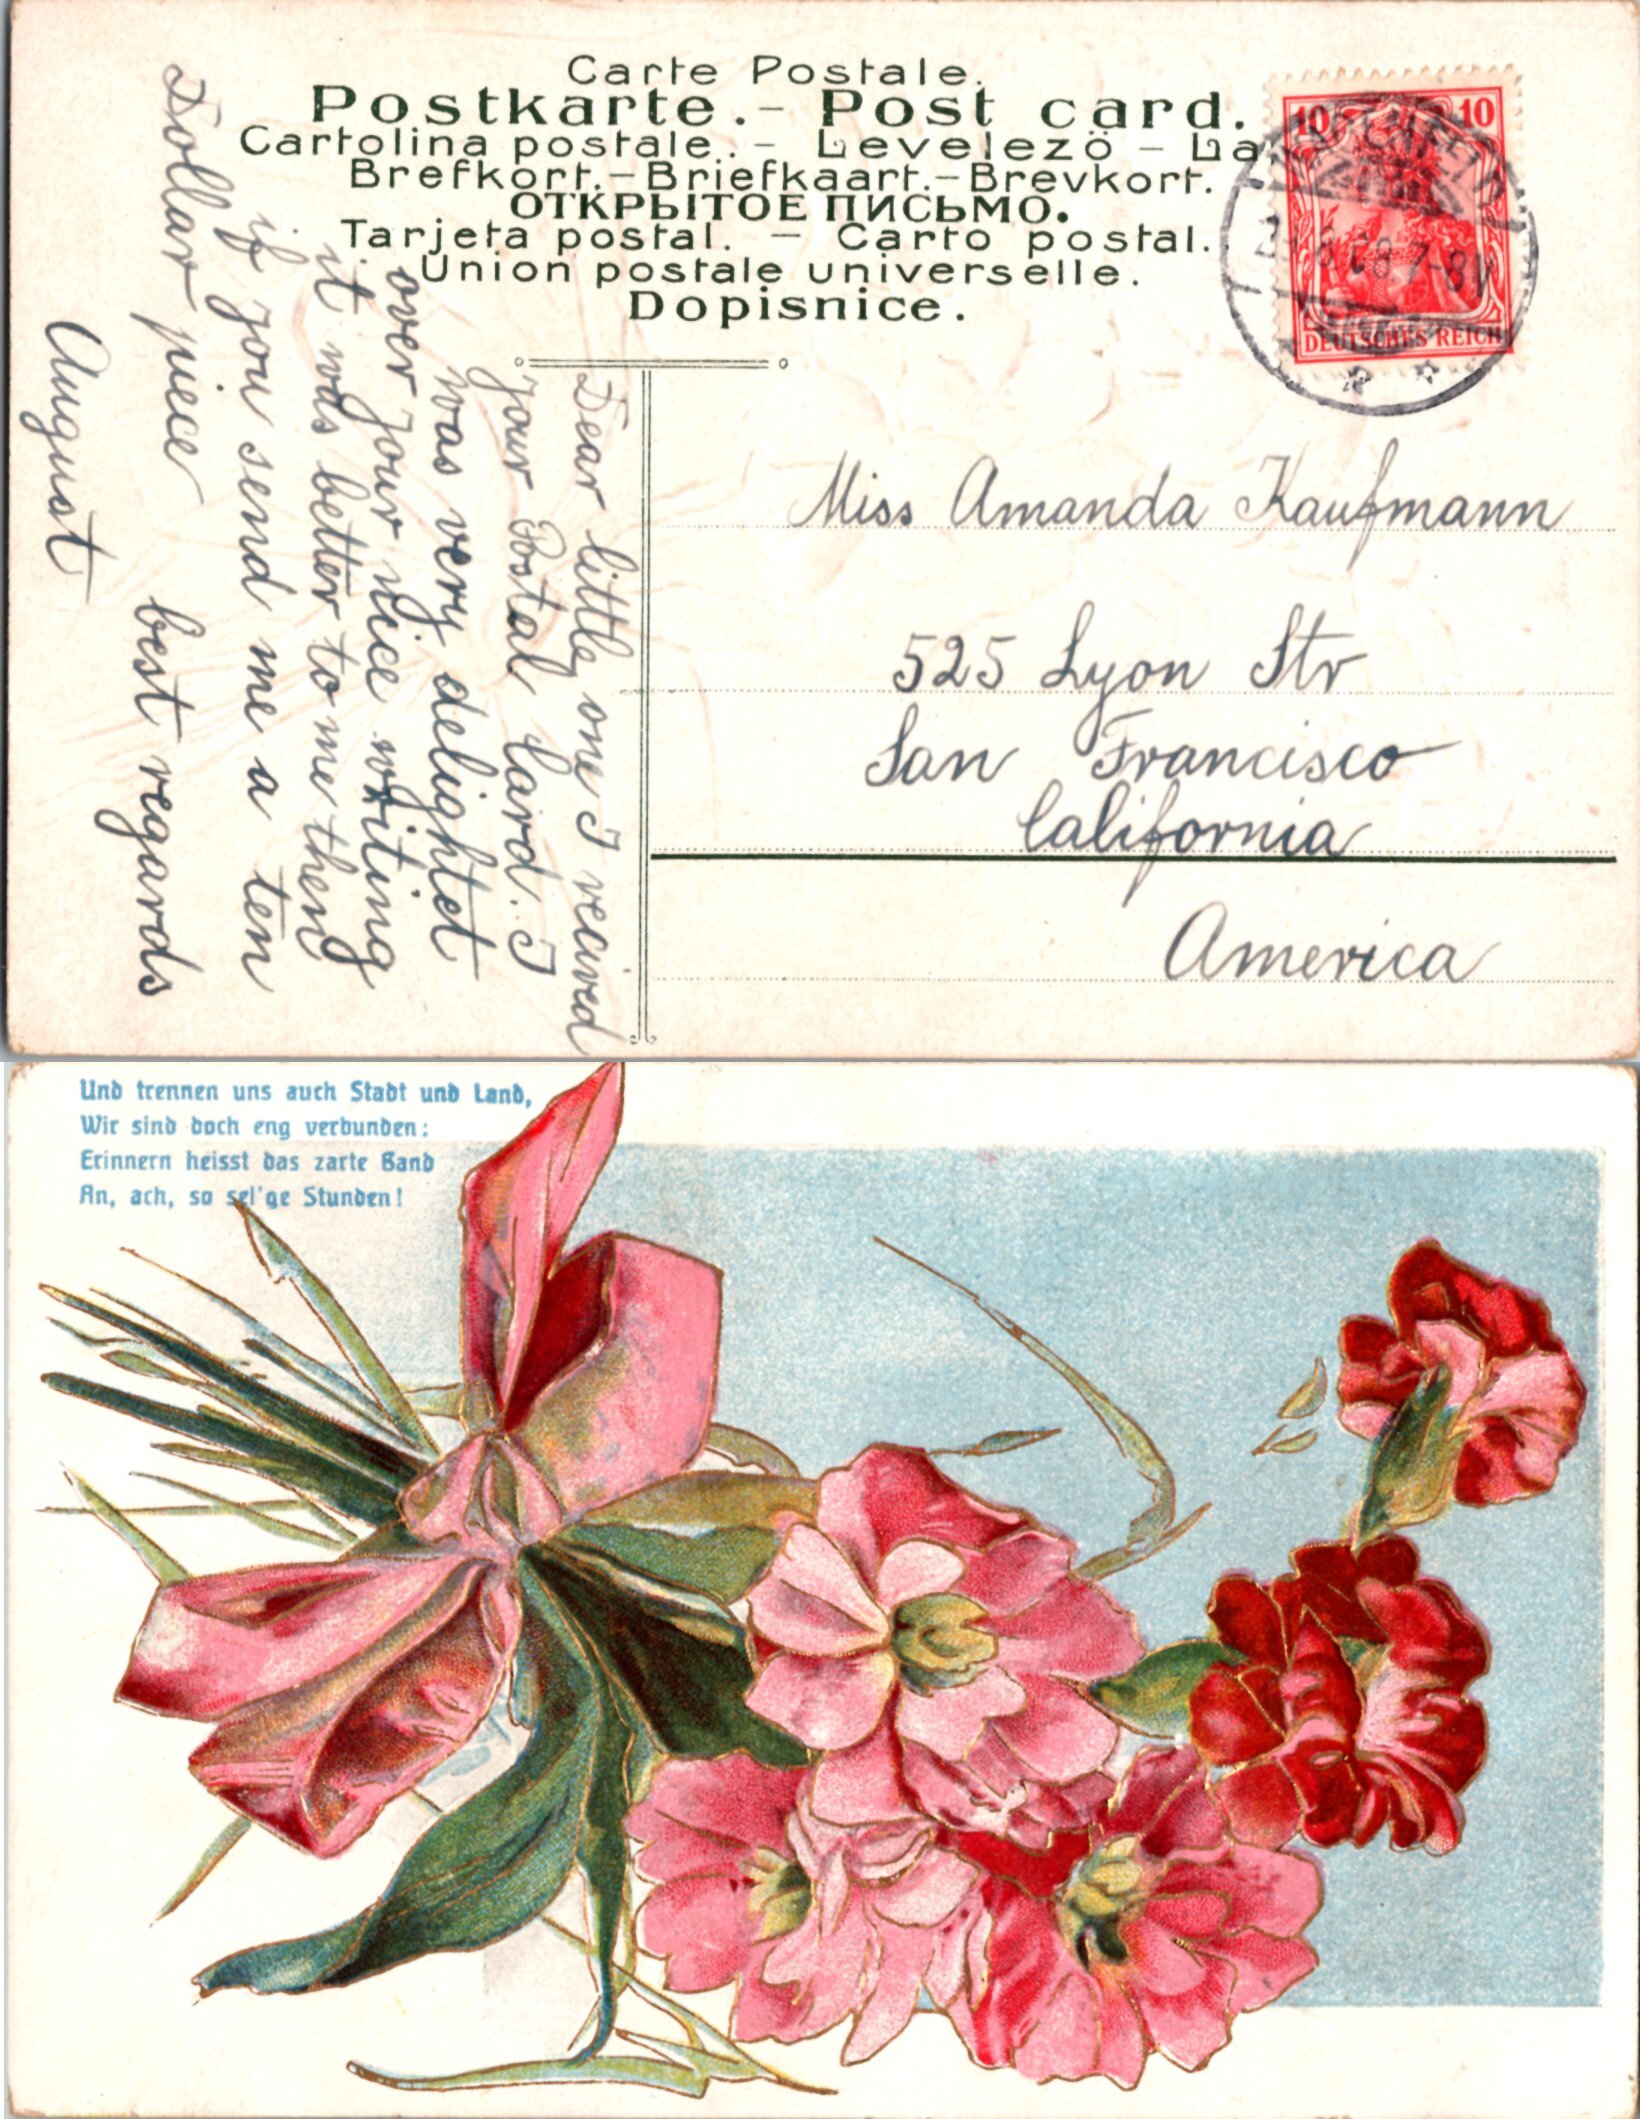 Carte Postale.
Postkarte.- Post card.
Cartolina postale. - Levelezö - La
Brefkort.-Briefkaart.-Brevkort.
ОТКРЫТОЕ ПИСЬМО.
Tarjeta postal. - Carto postal.
Union postale universelle.
Dopisnice.
10 10
DEUTSCHES REICH
7-8V
Dear little one I recived
Your Postal Card. I
was very delightet
over your nice writing
it was better to me then
if you send me a ten
Dollar piece best regards
August
Miss Amanda Kaufmann
525 Lyon Str
San Francisco
California
America
Und trennen uns auch Stadt und Land,
Wir sind doch eng verbunden:
Erinnern heisst das zarte Band
An, ach, so sel'ge Stunden!